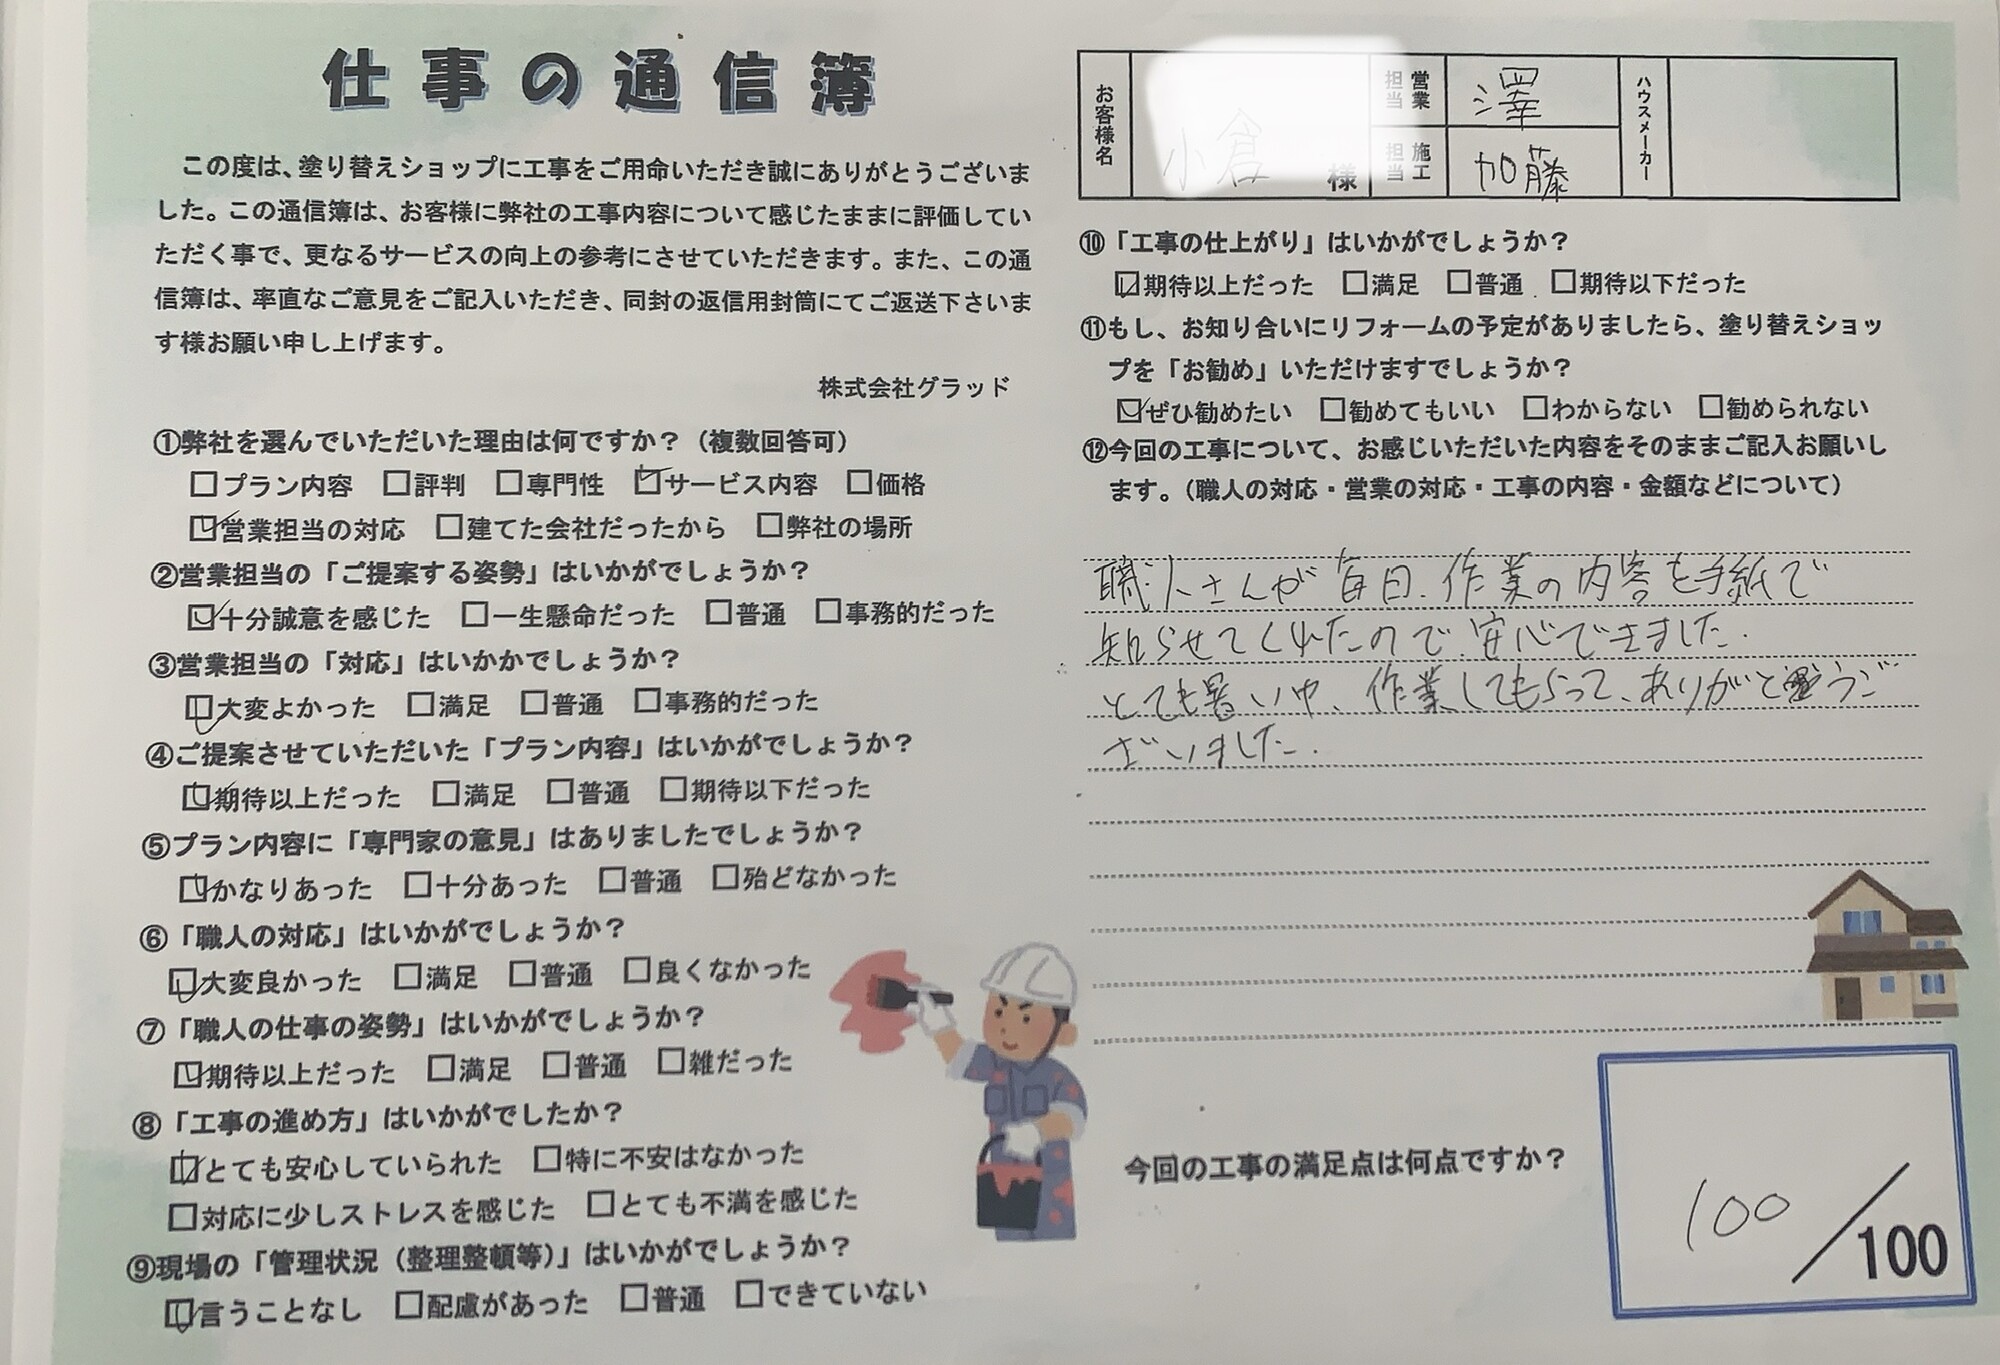 仕事の通信簿
この度は、塗り替えショップに工事をご用命いただき誠にありがとうございま
した。この通信簿は、お客様に弊社の工事内容について感じたままに評価してい
ただく事で、更なるサービスの向上の参考にさせていただきます。また、この通
信簿は、率直なご意見をご記入いただき、同封の返信用封筒にてご返送下さいま
す様お願い申し上げます。
株式会社グラッド
①弊社を選んでいただいた理由は何ですか？（複数回答可）
□プラン内容 □評判 □専門性 ☑サービス内容 □価格
☑営業担当の対応 □建てた会社だったから □弊社の場所
②営業担当の「ご提案する姿勢」はいかがでしょうか？
☑十分誠意を感じた □一生懸命だった □普通 □事務的だった
③営業担当の「対応」はいかかでしょうか？
☑大変よかった □満足 □普通 □事務的だった
④ご提案させていただいた「プラン内容」はいかがでしょうか？
☑期待以上だった □満足 □普通 □期待以下だった
⑤プラン内容に「専門家の意見」はありましたでしょうか？
☑かなりあった □十分あった □普通 □殆どなかった
⑥「職人の対応」はいかがでしょうか？
☑大変良かった □満足 □普通 □良くなかった
⑦「職人の仕事の姿勢」はいかがでしょうか？
☑期待以上だった □満足 □普通 □雑だった
⑧「工事の進め方」はいかがでしたか？
☑とても安心していられた □特に不安はなかった
□対応に少しストレスを感じた □とても不満を感じた
⑨現場の「管理状況（整理整頓等）」はいかがでしょうか？
☑言うことなし □配慮があった □普通 □できていない
お客様名 小倉 様 営業担当 澤 ハウスメーカー
施工担当 加藤
⑩「工事の仕上がり」はいかがでしょうか？
☑期待以上だった □満足 □普通 □期待以下だった
⑪もし、お知り合いにリフォームの予定がありましたら、塗り替えショッ
プを「お勧め」いただけますでしょうか？
☑ぜひ勧めたい □勧めてもいい □わからない □勧められない
⑫今回の工事について、お感じいただいた内容をそのままご記入お願いし
ます。（職人の対応・営業の対応・工事の内容・金額などについて）
職人さんが毎日、作業の内容を手紙で
知らせてくれたので、安心できました。
とても暑い中、作業してもらって、ありがとうご
ざいました。
今回の工事の満足点は何点ですか？
100／100